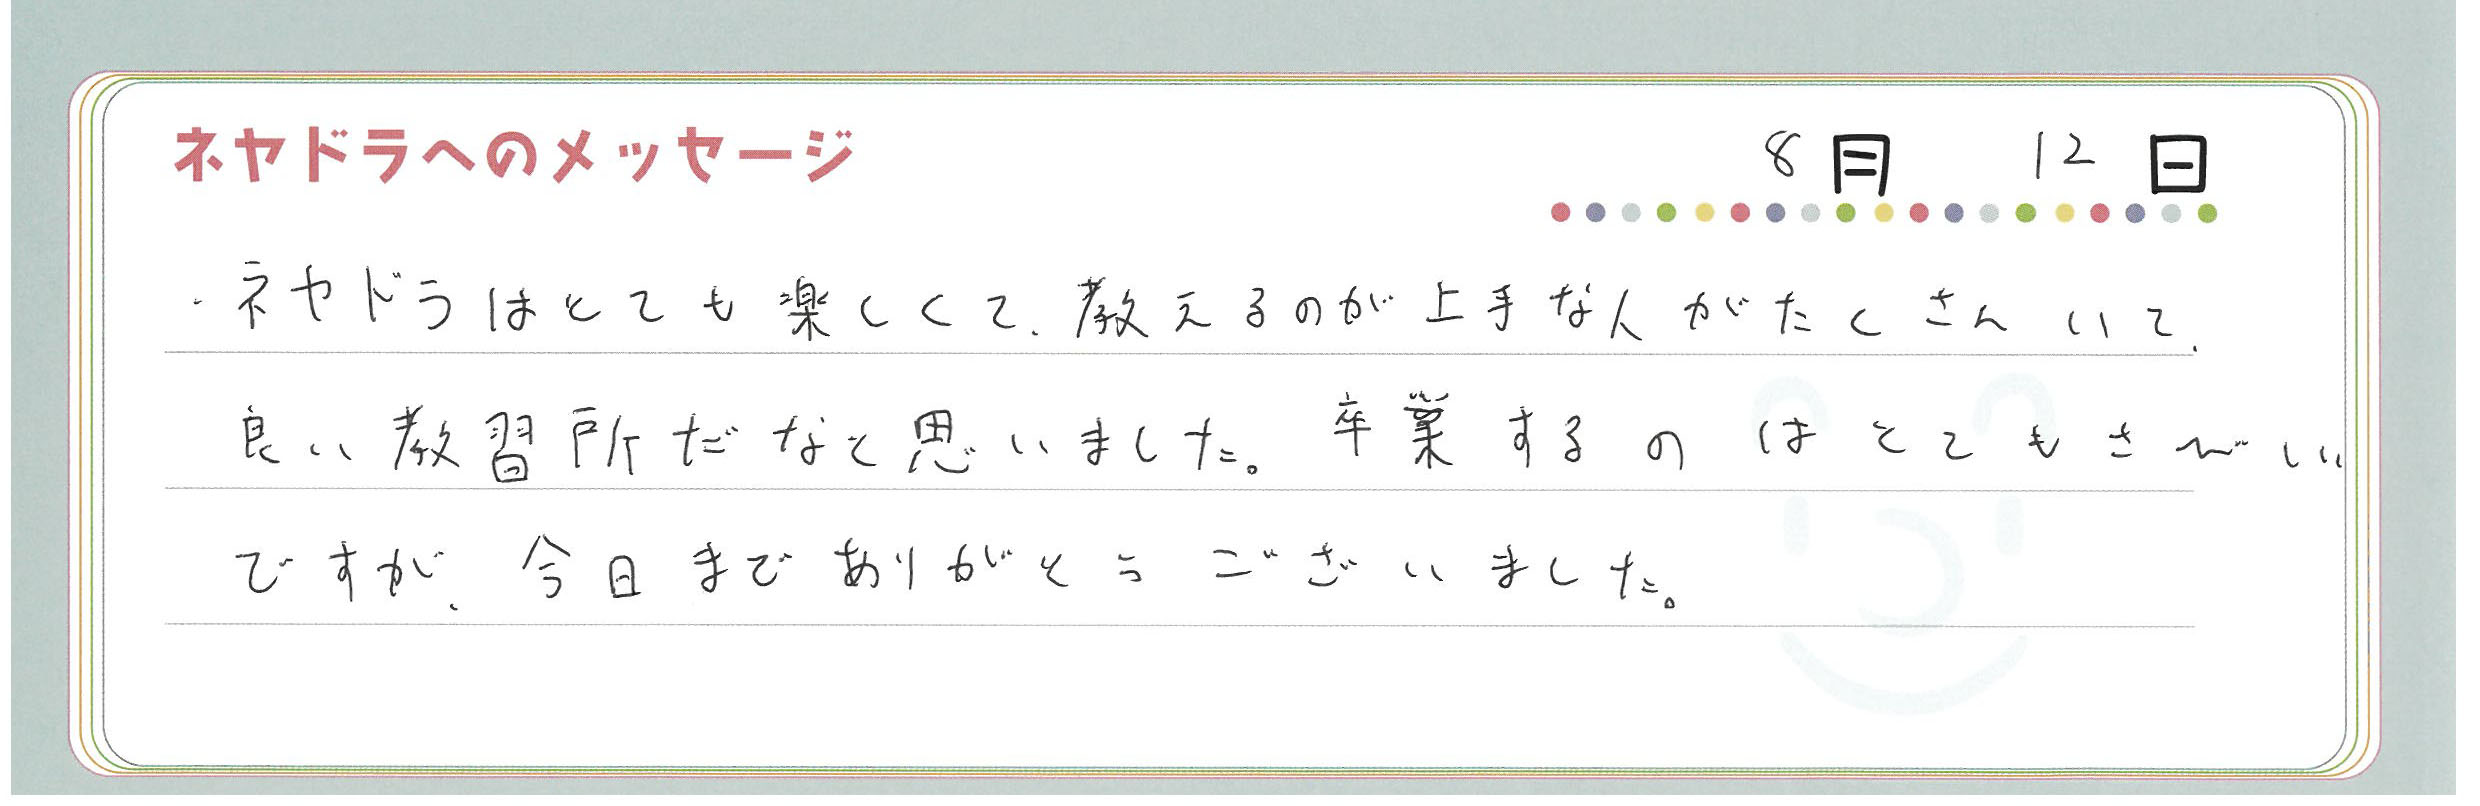 ネヤドラへのメッセージ
8月 12日
・ネヤドラはとても楽しくて、教えるのが上手な人がたくさんいて、
良い教習所だなと思いました。卒業するのはとてもさべしい
ですが、今日までありがとうございました。